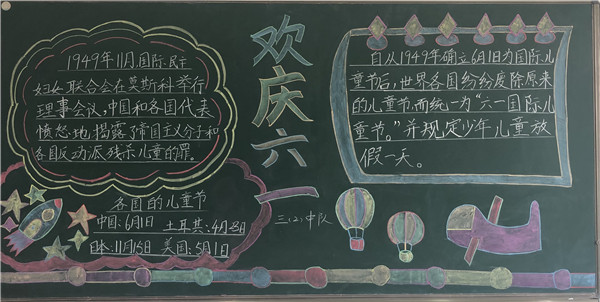 1949年11月,国际民主
妇女联合会在莫斯科举行
理事会议,中国和各国代表
愤怒地揭露了帝国主义分子和
各国反动派残杀儿童的罪。
各国的儿童节
中国:6月1日 土耳其:4月23日
日本:11月15日 美国:5月1日
欢庆六一
三(2)中队
自从1949年确立6月1日为国际儿
童节后,世界各国纷纷废除原来
的儿童节,而统一为“六一国际儿
童节。”并规定少年儿童放
假一天。